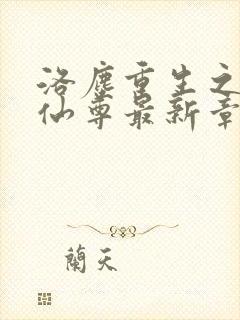 洛塵重生之
仙尊最新章
蘭天